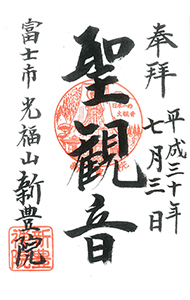 奉拝
平成三十年
七月三日
聖観音
日本一の
大観音
富士市 光福山 新豊院
新豊院